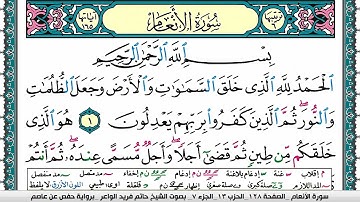 ترتيبها ٦
سورة الأنعام
آياتها ١٦٥
بِسْمِ ٱللَّهِ ٱلرَّحْمَٰنِ ٱلرَّحِيمِ
ٱلْحَمْدُ لِلَّهِ ٱلَّذِى خَلَقَ ٱلسَّمَٰوَٰتِ وَٱلْأَرْضَ وَجَعَلَ ٱلظُّلُمَٰتِ
وَٱلنُّورَ ۖ ثُمَّ ٱلَّذِينَ كَفَرُوا۟ بِرَبِّهِمْ يَعْدِلُونَ ١ هُوَ ٱلَّذِى
خَلَقَكُم مِّن طِينٍ ثُمَّ قَضَىٰٓ أَجَلًا ۖ وَأَجَلٌ مُّسَمًّى عِندَهُۥ ۖ ثُمَّ أَنتُمْ
سورة الأنعام الصفحة ١٢٨ الحزب ١٣ الجزء ٧ بصوت الشيخ حاتم فريد الواعر برواية حفص عن عاصم